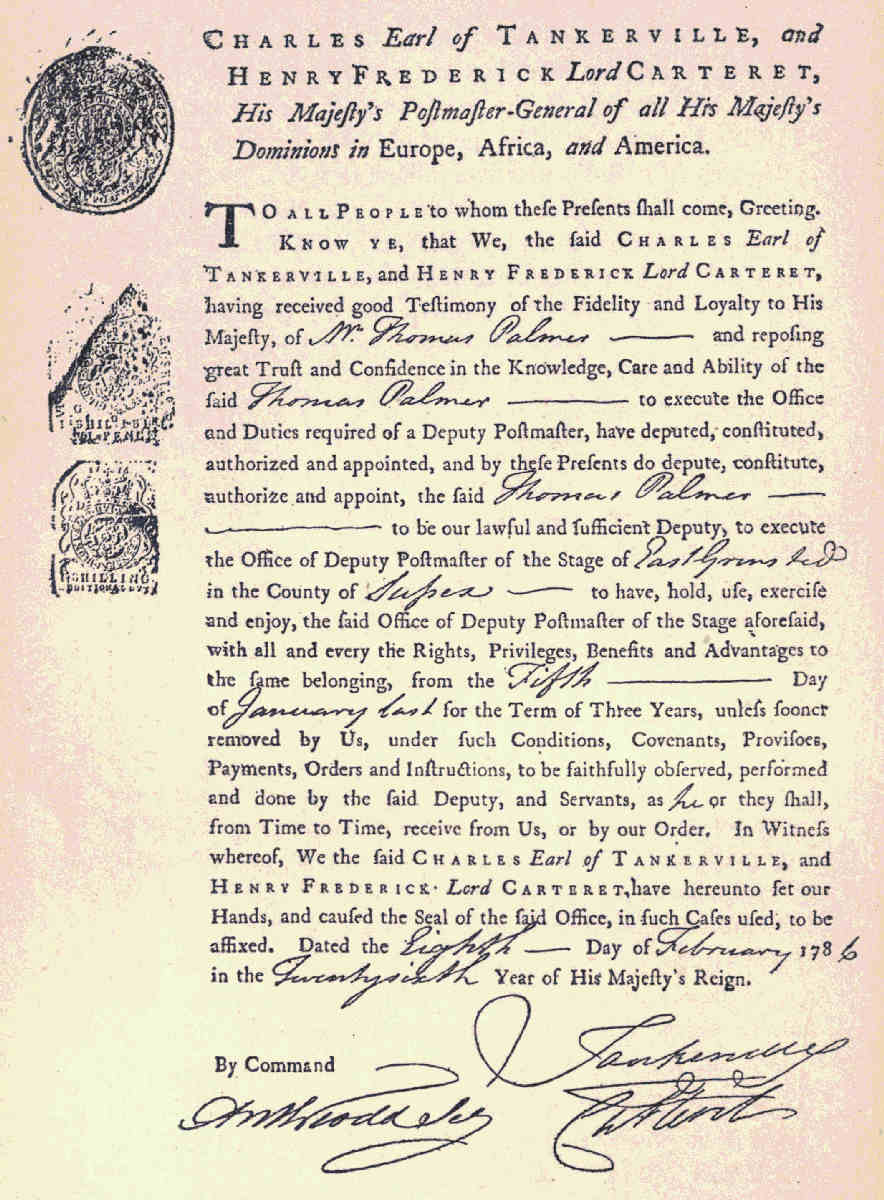 CHARLES Earl of TANKERVILLE, and
HENRY FREDERICK Lord CARTERET,
His Majeſty's Poſtmaſter-General of all His Majeſty's
Dominions in Europe, Africa, and America.
TO ALL PEOPLE to whom theſe Preſents ſhall come, Greeting.
KNOW YE, that We, the ſaid CHARLES Earl of
TANKERVILLE, and HENRY FREDERICK Lord CARTERET,
having received good Teſtimony of the Fidelity and Loyalty to His
Majeſty, of Mr. Thomas Palmer and repoſing
great Truſt and Confidence in the Knowledge, Care and Ability of the
ſaid Thomas Palmer to execute the Office
and Duties required of a Deputy Poſtmaſter, have deputed, conſtituted,
authorized and appointed, and by theſe Preſents do depute, conſtitute,
authorize and appoint, the ſaid Thomas Palmer
to be our lawful and ſufficient Deputy, to execute
the Office of Deputy Poſtmaſter of the Stage of East Grinsted
in the County of Suſsex to have, hold, uſe, exerciſe
and enjoy, the ſaid Office of Deputy Poſtmaſter of the Stage aforeſaid,
with all and every the Rights, Privileges, Benefits and Advantages to
the ſame belonging, from the Fifth Day
of January last for the Term of Three Years, unleſs ſooner
removed by Us, under ſuch Conditions, Covenants, Proviſoes,
Payments, Orders and Inſtructions, to be faithfully obſerved, performed
and done by the ſaid Deputy, and Servants, as he or they ſhall,
from Time to Time, receive from Us, or by our Order. In Witneſs
whereof, We the ſaid CHARLES Earl of TANKERVILLE, and
HENRY FREDERICK Lord CARTERET, have hereunto ſet our
Hands, and cauſed the Seal of the ſaid Office, in ſuch Caſes uſed, to be
affixed. Dated the Eighth Day of February 1786
in the Twentysixth Year of His Majeſty's Reign.
Tankerville
By Command
Carteret
Anth Todd Sec
SHILLING